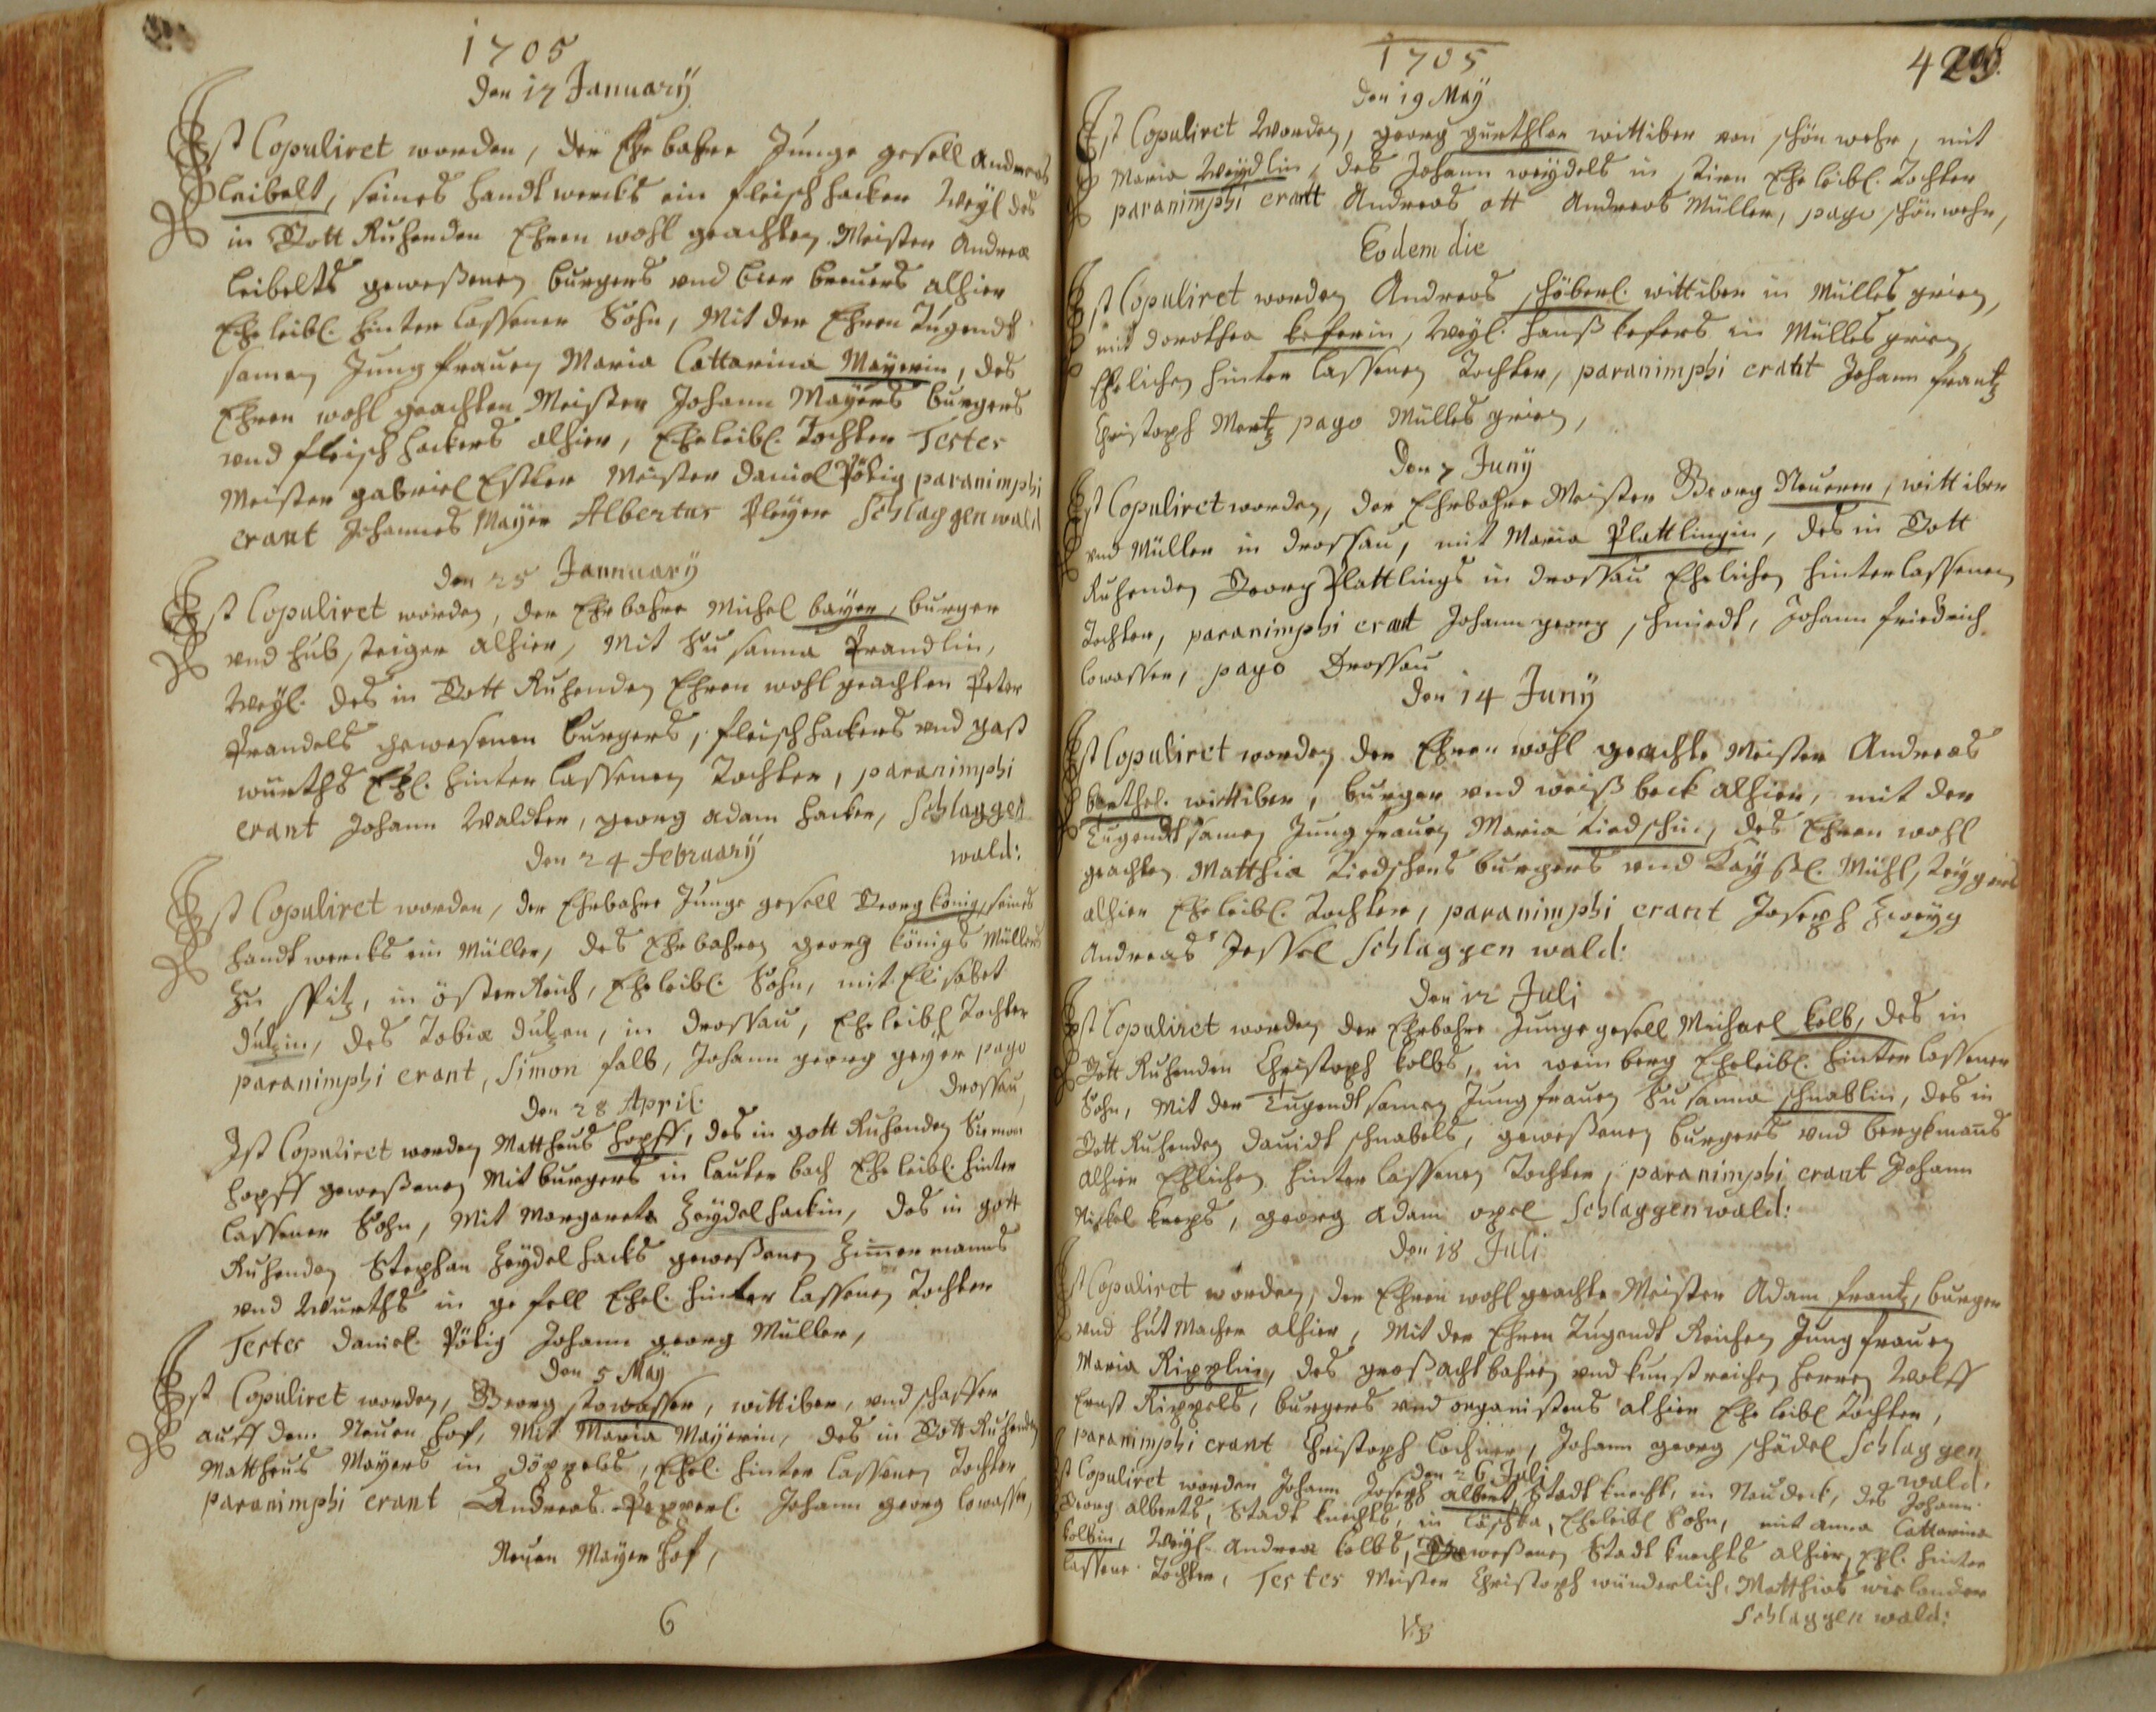 1705
den 17 January
Ist Copuliret worden, der Ehrbahre Junge gesell Andreas
Leibelt, seines handtwercks ein fleischhacker Weyl. des
in Gott Ruhenden Ehren wohl geachten Meister Andreæ
Leibelts geweßenen burgers und bier breuers alhier
Eheleibl. hinter lassener Sohn, Mit der Ehren Tugendt
samen Jungfrauen Maria Cattarina Mayerin, des
Ehren wohl geachten Meister Johann Mayers burgers
und fleischhackers alhier, Eheleibl. Tochter Testes
Meister gabriel Meister Daniel Pökig paranimphi
erant Johannes Mayer Albertus Pleyer Schlaggenwald
den 25 Jannuary
Ist Copuliret worden, der Ehrbahre Michel bayer, burger
und hubsteiger alhier, Mit Susanna Prandlin,
Weyl. des in Gott Ruhenden Ehren wohl geachten Peter
Prandels gewesenen burgers, fleischhackers und gast
würths Ehl. hinter lassenen Tochter, paranimphi
erant Johann Waldter, georg adam hacker, Schlaggen
wald:
den 24 February
Ist Copuliret worden, der Ehrbahre Junge gesell Georg König, seines
handtwercks ein Müller, des Ehrbahren georg Königs Müllers
zu Spitz, in österReich, Eheleibl. Sohn, mit Elisabet
Dutzin, des Tobiæ Dutzen, in Drossau, Eheleibl Tochter
paranimphi erant, Simon falb, Johann georg geyer pago
Drossau,
den 28 April.
Ist Copuliret worden Mattheus Hopff, des in gott Ruhenden Simon
Hopff geweßenen Mitburgers in Lauterbach Eheleibl. hinter
lassener Sohn, Mit Margareta Zeydelhackin, des in gott
Ruhenden Stephan Zeydelhacks geweßenen Zimmermanns
und Würths in gefell Ehel. hinter lassenen Tochter
Testes Daniel Pökig Johann georg Müller,
den 5 May
Ist Copuliret worden, Georg Lowasser, wittiber, und schaffer
auff dem Neuen hof, Mit Maria Mayerin, des in Gott Ruhenden
Mattheus Mayers in Döppeles, Ehel. hinter lassenen Tochter
paranimphi erant Andreas Pepperl. Johann georg Lowasser,
Neuen Mayer hof,
6
1705
429.
den 19 May
Ist Copuliret Worden, georg gürthler wittiber von schönwehr, mit
Maria Weydlin, des Johann weydels in Eheleibl. Tochter
paranimphi erant Andreas ott Andreas Müller, pago schönwehr,
Eodem die
Ist Copuliret worden Andreas schöberl. wittiber in Müllesgrien,
mit Dorothea Keferin, Weyl. Hanß Kefers in Müllesgrien
Ehelichen hinter lassenen Tochter, paranimphi erant Johann frantz
Christoph Mertz pago Müllesgrien,
den 7 Juny
Ist Copuliret worden, der Ehrbahre Meister Georg Neuerer, wittiber
und Müller in Drossau, mit Maria Plattlingin, des in Gott
Ruhenden Georg Plattlings in Drossau Ehelichen hinterlassenen
Tochter, paranimphi erant Johann georg schmiedt, Johann friedrich
Lowasser, pago Drossau
den 14 Juny
Ist Copuliret worden der Ehren wohl geachte Meister Andreas
barthel. wittiber, burger und weißbeck alhier, mit der
Tugendtsamen Jungfrauen Maria Liedschin, des Ehren wohl
geachten Matthiæ Liedschens burgers und Kayßl. Mühl,
alhier Eheleibl. Tochter, paranimphi erant Joseph Zweyg
Andreas Jessel Schlaggenwald:
den 12 Juli
Ist Copuliret worden der Ehrbahre Junge gesell Michael Kolb, des in
Gott Ruhenden Christoph Kolbs, in weinberg Eheleibl. hinter lassener
Sohn, Mit der Tugendtsamen Jungfrauen Susanna schnablin, des in
Gott Ruhenden Davidt schnabels, geweßenen burgers und bergkmanns
alhier Ehlichen hinter lassenen Tochter, paranimphi erant Johann
Nickel georg adam opel Schlaggenwald:
den 18 Juli
Ist Copuliret worden, der Ehren wohl geachte Meister Adam frantz, burger
und hut Macher alhier, Mit der Ehren Tugendt Reichen Jungfrauen
Maria Ripplin, des großachtbahren und Kunstreichen Herren Wolff
Ernst Rippels, burgers und organistens alhier Eheleibl Tochter,
paranimphi erant Christoph Lochner, Johann georg schädel Schlaggen
wald.
den 26 Juli
Ist Copuliret worden Johann Joseph albert, Stadt Knecht, in Neudeck, des Johann
Georg alberts, Stadt Knechts, in Eheleibl Sohn, mit anna Cattarina
Kolbin, Weyl. Andreæ Kolbs, geweßenen Stadt Knechts alhier, Ehl. hinter
lassene Tochter, Testes Meister Christoph wunderlich, Matthias wielander
Schlaggenwald: